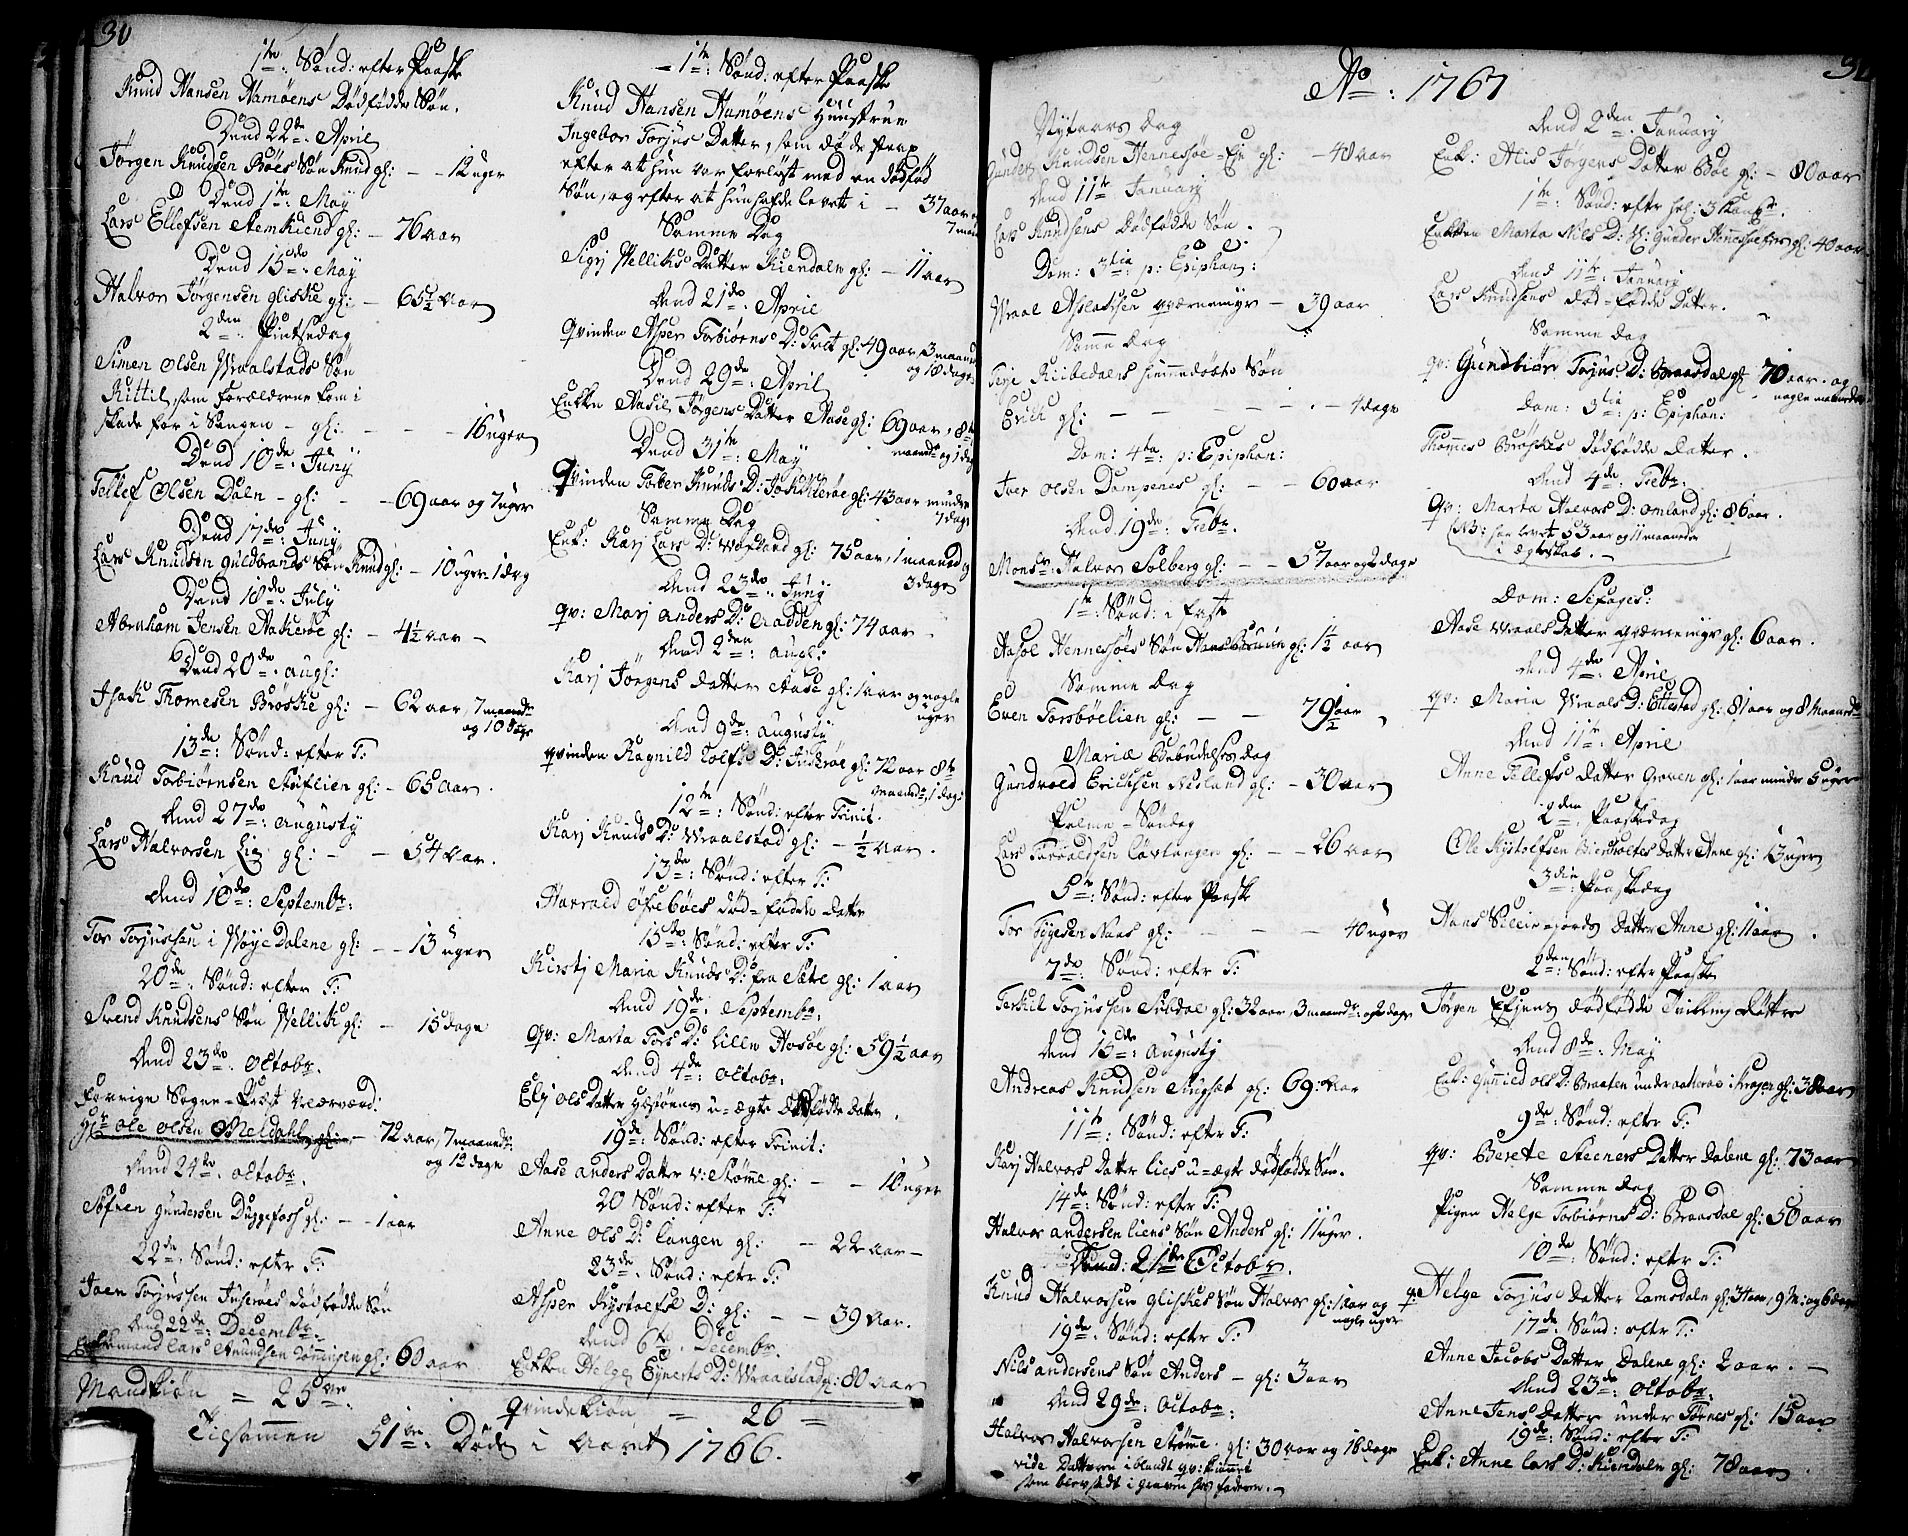 30
1te: Sønd: efter Paaske
Knud Hansen Hamøens Dødfødde Søn.
Dend 22de April
Jørgen Knudsen Bøes Søn Knud gl: - - 12 uger
Dend 1te May
Lars Ellefsen gl: - 76 aar
Dend 15de May
Halvor Jørgensen Gliske gl: - 65½ aar
2den Pintsedag
Simen Olsen Vraalstads Søn
Kittil, som Forældrene kom i
skade for i Sengen - gl: - - 16 uger
Dend 10de: Juny
Tellef Olsen Daln - gl: - - 69 aar og 7 uger
Dend 17de: Juny
Lars Knudsen Guldbrands Søn Knud gl: - 10 uger 1 dag
Dend 18de: July
Abraham Jensen Aakerøe gl: - 4½ aar -
Dend 20de: Augl:
Isach Thomesen Brøske gl: - 62 aar, 7 maand:
og 10 dage
13de: Sønd: efter T:
Knud Torbiørnsen Stuflien gl: - 65 aar.
Dend 27de: Augusty
Lars Halvorsen Lie gl: - - 54 aar.
Dend 10de: Septembr:
Tor Torjussen i Nøye Dalene gl: - - 13 uger
20de: Sønd: efter T:
Svend Knudsens Søn Vellik gl: - 15 dage
Dend 23de: Octobr.
Forrige Sogne-Præst velærværd:
Hr Ole Olsen Meldahl gl: - 72 aar, 7 maand:
og 12 dage
Dend 24de. Octobr.
Søfren Gundersen Duggefoss gl: - 1 aar
22de: Sønd: eftr T:
Joen Torjussen Juserøes dødfødde Søn
Dend 22de: Decembr.
Enkemand Lars Knudsen gl: 60 aar
Mandkiøn = 25ve.
- 1te: Sønd: efter Paaske
Knud Hansen Hamøens Huustrue
Ingebor Torjus Datter, som døde strax
efter at hun var forløst med en dødfød
Søn, og efter at hun hafde levet i - 37 aar
7 maan
Samme Dag
Sigrj Velliks Datter Kiendaln gl: - 11 aar
Dend 21de April
Qvinden Asper Torbiørns D: Tvet gl: 49 aar 3 maand
og 18 dage
Dend 29de: April
Enken Aasil Jørgens Datter Aase gl: 69 aar, 8te
maand: og 1 dag
Dend 31te: May
Qvinden Torber Knuds D: gl: 43 aar mindre
7 dage
Samme Dag
Enk: Karj Lars D: gl: 75 aar, 1 maaned og
3 dage
Dend 23de: Juny
Qv: Marj Anders D: Aadden gl: 74 aar.
Dend 2den: Augl:
Karj Jørgens Datter Aase gl: 1 aar og nogle
uger
Dend 9de: Augusty
Qvinden Ragnild Tolfs D: gl: 72 aar 8te
maand:, 1 dag
12te: Sønd: efter Trinit.
Karj Knuds D: Vraalstad gl: - ½ aar.
13de: Sønd: efter T:
Harrald Øfrebøes død-fødde Datter
15de: Sønd: efter T:
Kirstj Maria Knuds D: fra Sæte gl: 1 aar
Dend 19de: Septembr.
Qv: Marta Tors D: Lille Hosøe gl: 59½ aar
Dend 4de: Octobr.
Elj Ols Datter u-ægte Dødfødde Datter.
19de: Sønd: efter Trinit:
Aase Anders Datter v: Strømme gl: - - 10 uger
20 Sønd: efter T:
Anne Ols D: Langen gl: - 22 aar -
23de. Sønd: efter T:
Asper Kystolfs D: gl: - - 39 aar.
Dend 6te. Decembr.
Enken Helge Eynerts D: Vraalstad gl: 80 aar
Qvindekiøn = 26 =
Tilsammen 51ve: Døde i Aaret 1766.
Ao: 1767
31
Nytaars Dag
Gunder Knudsen Hennesøe-Eje gl: - 48 aar
Dend 11te January
Lars Knudsens Dødfødde Søn.
Dom: 3tia: p: Epiphan:
Vraal Aslaksen qværnemyr - 39 aar
Samme dag
Terje Kiibedalens hiemmedøbte Søn
Erich gl: - - - - - 4 dage
Dom: 4ta: p: Epiphan:
Iver Olsen Dampenes gl: - - 60 aar
Dend 19de: Febr.
Monsr. Halvor Solberg gl: - - 57 aar og 2 dage
1te: Sønd: i faste
Aasol Hennesøes Søn gl: 1½ aar
Samme dag
Even Torsbøelien gl: - - 79½ aar
Mariæ Bebudelses dag
Gundvold Ericksen Nesland gl: - 30 aar
Palme-Søndag
Lars Taraldsen Løvtangen gl: - - 26 aar
5te: Sønd: efter Paaske
Tor Tygesen Naas gl: - - - 40 uger
7de: Sønd: eftr T:
Terkel Torjussen Sildal gl: 32 aar, 3 maand: og 2 dage
Dend 15de: Augusty
Andreas Knudsen gl: 69: aar
11te: Sønd: eftr T:
Karj Halvors Datter Lies u-ægte dødfødde Søn.
14de: Sønd: eftr T:
Halvor Andersen Liens Søn Anders gl: 11 uger.
Dend: 21de Octobr.
Knud Halvorsen Gliskes Søn Halvor gl: 1 aar og
nogle uger
19de: Sønd: eftr T:
Nils Andersens Søn Anders - gl: 3 aar
Dend 29de: Octobr:
Halvor Halvorsen Strømme. gl: 30 aar og 16 dage
vide Datteren i blandt qv: kiønnet
som blev sadt i graven hos faderen. -
Dend 2den: January
Enk: Alis Jørgens Datter Bøe gl: - 80 aar
1te: Sønd: efter hel: 3 Kongr.
Enken Marta Nils D: gl: 40 aar
Dend 11te: January
Lars Knudsens død-fødde Datter.
Samme dag
qv: Gundbiør Torjus D: Braasdal gl: 70 aar. og
nogle maaneder
Dom: 3tia: p: Epiphan:
Thomes Brøskes dødfødde Datter.
Dend 4de: Febr.
Qv: Marta Halvors D: Omland gl: 86 aar.
(NB: har levet 53 aar og 11 maaneder
i Ægteskab. -
Dom: Sexages:
Aase Vraals Datter qværnemyr gl: 6 aar.
Dend 4de: April
qv: Maria Vraals D: Ellestad gl: 81 aar og 8 Maand:
Dend 11te: April
Anne Tellefs Datter Groven gl: 1 aar mindre 5 uger
2den: Paaskedag
Ole Kystolfsen Datter Anne gl: 13 uger
3die: Paaskedag
Hans Datter Anne gl: 11 aar.
2den: Sønd: efter Paaske
Jørgen dødfødde Tvilling døttre
Dend 8de: May
Enk: Gunild Ols D: Braaten under Aakerøe gl: 38 aar
9de: Sønd: eftr T:
qv: Berete Steeners Datter Dalene gl: 73 aar
Samme dag
Pigen Helge Torbiørns D: Braasdal gl: 56 aar
10de: Sønd: eftr T:
q: Helge Torjus Datter Ramsdaln gl: 34 aar, 9 M: og 6 dage
17de: Sønd: eftr T:
Anne Jacobs Datter Dalene gl: 2 aar. -
Dend 23de: Octobr.
Anne Jens Datter under Tørnes gl: 15 aar
19de: Sønd: eftr T:
Enk: Anne Lars D: Kiendaln gl: 78 aar.